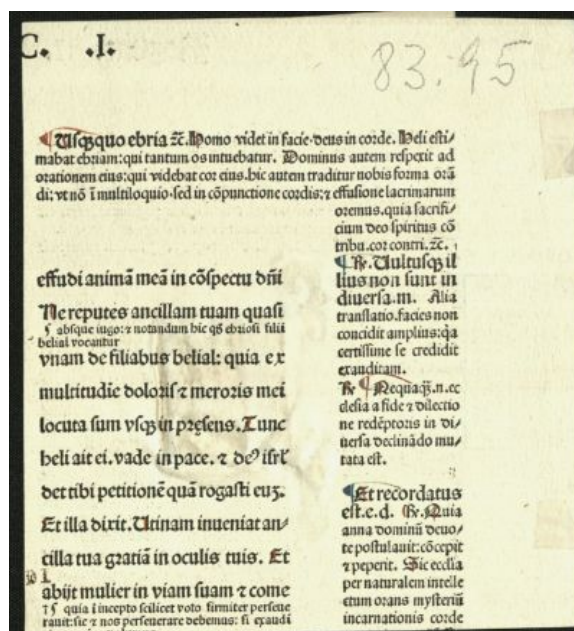 C. .I.
83.95
¶ Usqꝫquo ebria ⁊c. Homo videt in facie·deus in corde. Heli esti⸗
mabat ebriam: qui tantum os intuebatur. Dominus autem respexit ad
orationem eius: qui videbat cor eius. hic autem traditur nobis forma orā
di: vt nō ī multiloquio·sed in cōpunctione cordis: ⁊ effusione lacrimarum
oremus. quia sacrifi⸗
cium deo spiritus cō
tribu. cor contri. ⁊c.
effudi animā meā in cōspectu dn̄i
Ne reputes ancillam tuam quasi
¶ absque iugo: ⁊ notandum hic qꝫ ebriosi filii
belial vocantur
vnam de filiabus belial: quia ex
multitudīe doloris ⁊ meroris mei
locuta sum vsqꝫ in pręsens. Tunc
heli ait ei. vade in pace. ⁊ deꝰ isrl̄
det tibi petitionē quā rogasti euꝫ.
Et illa dixit. Utinam inueniat an⸗
cilla tua gratiā in oculis tuis. Et
abijt mulier in viam suam ⁊ come
quia ī incepto scilicet voto firmiter perseue
rauit: sic ⁊ nos perseuerare debemus: si exaudi
¶ Uultusqꝫ il
lius non sunt in
diuersa. m. Alia
translatio. facies non
concidit amplius: qa
certissime se credidit
exauditam.
¶ Nequaqꝫ. n. ec
clesia a fide ⁊ dilectio
ne redēptoris in di⸗
uersa declinādo mu⸗
tata est.
¶ Et recordatus
est. e. d. Quia
anna dominū deuo⸗
te postulauit: cōcepit
⁊ peperit. Sic ecclīa
per naturalem intelle
ctum orans mysteriū
incarnationis corde